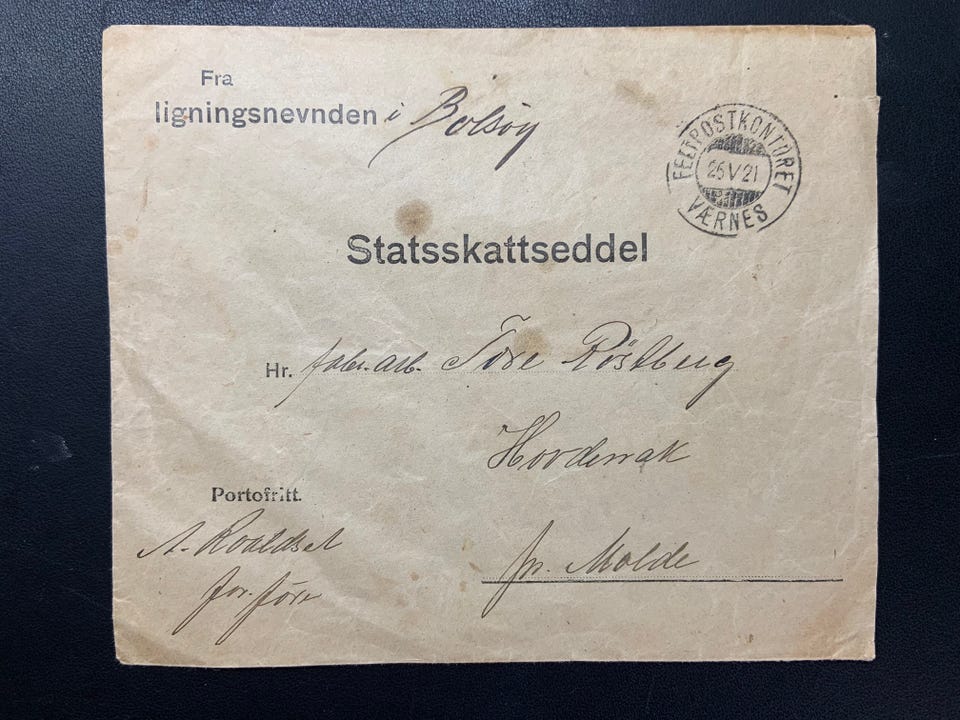 Fra
ligningsnevnden i Bolsöy
FELTPOSTKONTORET
26 V 21
VÆRNES
Statsskattseddel
Hr. fabr.arb. Tore Röstberg
Hordernak
Portofritt.
A. Roaldset
pr. Molde